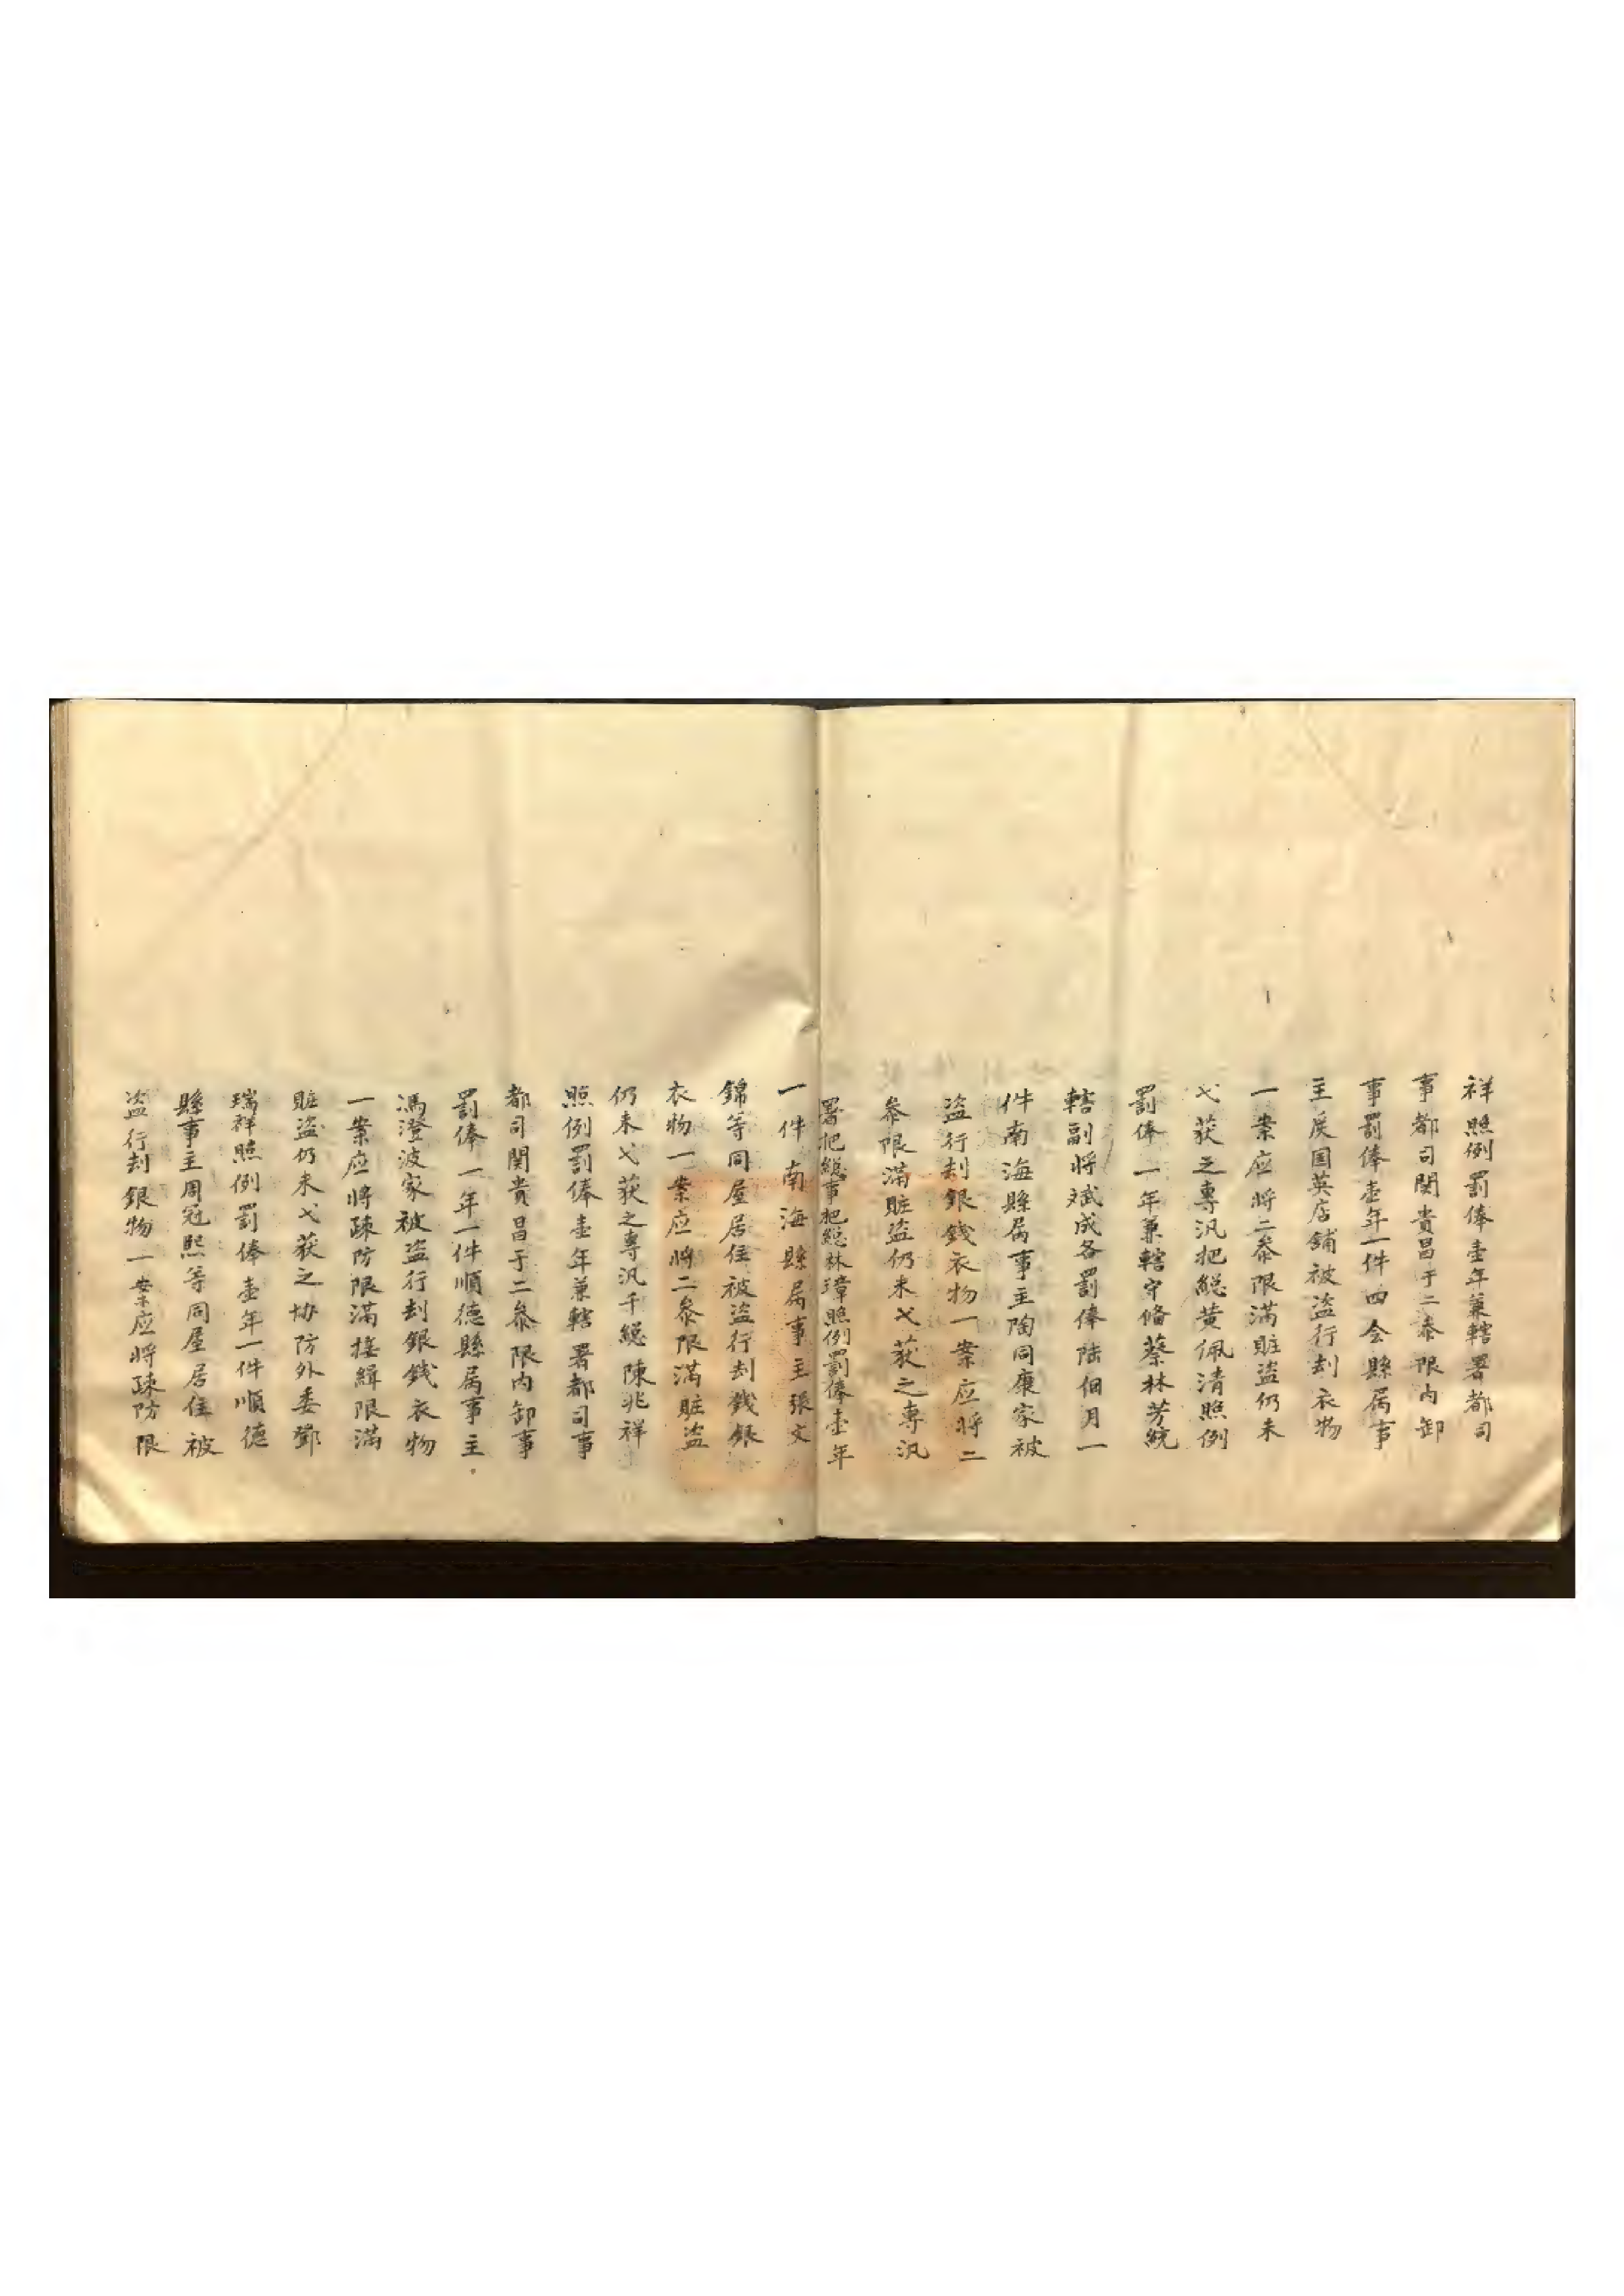 祥照例罰俸壹年兼轄署都司
事都司関貴昌于二叅限内卸
事罰俸壹年一件四会縣属事
主戻国英店舖被盗行刦衣物
一案应將二叅限滿賍盗仍未
弋获之專汛把總黄佩清照例
罰俸一年兼轄守俻蔡林芳統
轄副將斌成各罰俸陆佃月一
件南海縣属事主陶同康家被
盗行刦銀錢衣物一案应將二
叅限滿賍盗仍未弋获之專汛
署把總事把總林璋照例罰俸壹年
一件南海縣属事主張文
錦等同屋居住被盗行刦錢銀
衣物一案应將二叅限滿賍盗
仍未弋获之專汛千總陳兆祥
照例罰俸壹年兼轄署都司事
都司関貴昌于二叅限内卸事
罰俸一年一件順德縣属事主
馮澄波家被盗行刦銀錢衣物
一案应將疎防限滿接緝限滿
賍盗仍未弋获之协防外委鄧
瑞祥照例罰俸壹年一件順德
縣事主周冠熙等同屋居住被
盗行刦銀物一案应將疎防限